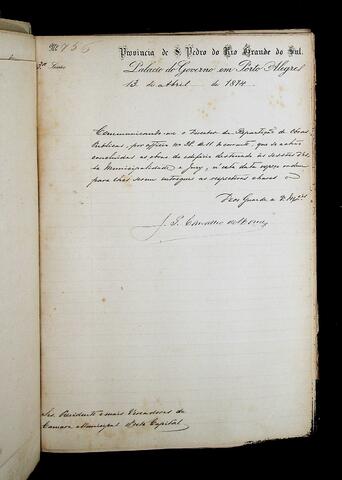 Nº 756
Provincia de S. Pedro do Rio Grande do Sul.
2ª Secção
Palacio do Governo em Porto Alegre
13 de Abril de 1874
Communicando-me o Director da Repartição de Obras
Publicas, por officio nº de 11 do corrente, que se achão
concluidas as obras do edificio destinado ás sessões dessa
Municipalidade e Jury, n'esta data expeço ordem
para lhes serem entregues as respectivas chaves
Deos Guarde a V. Mcês
J. P. Carvalho de Moraes
Srs. Presidente e mais Vereadores da
Camara Municipal desta Capital